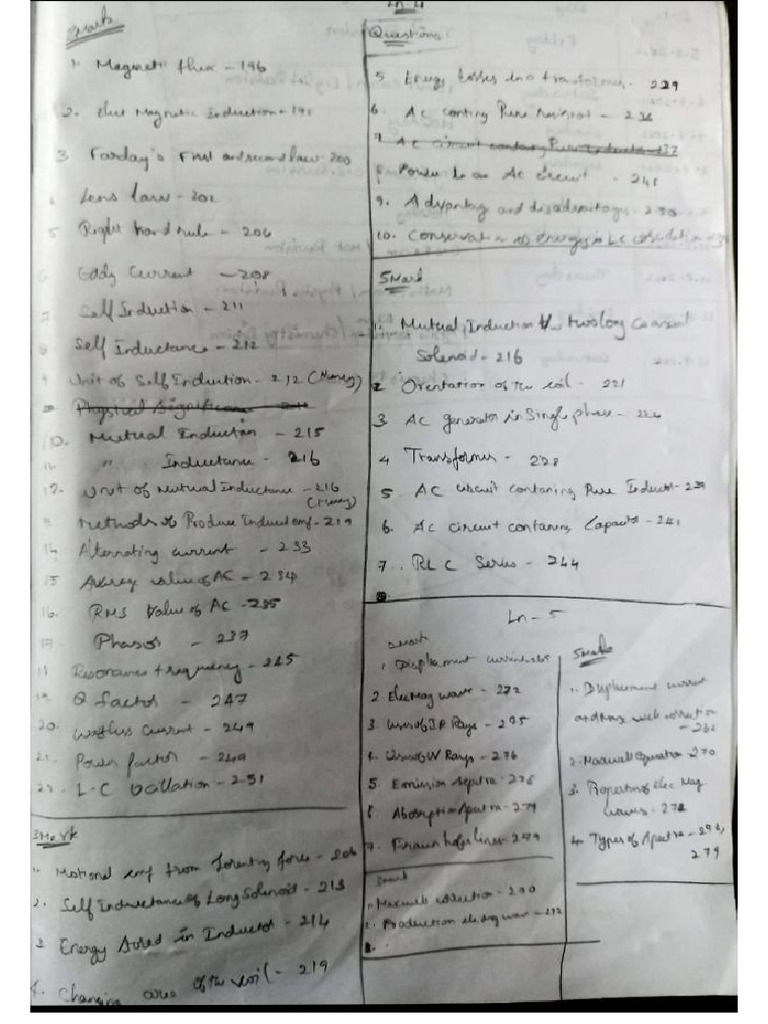 2Marks
1. Magnetic flux - 196
2. Elect Magnetic Induction - 191
3. Farday's First and second law - 200
4 Lens law - 202
5 Right hand rule - 206
6 Eddy Current - 208
7 Self Induction - 211
8 Self Inductance - 212
9 Unit of Self Induction - 212 (Henry)
Physical Significance
10. Mutual Induction - 215
11. " Inductance - 216
12. Unit of Mutual Inductance - 216
(Henry)
Methods of Produce Induced emf - 219
14. Alternating current - 233
15 Average value of AC - 234
16. RMS Value of AC - 235
17. Phasor - 237
18 Resonance frequency - 245
19. Q factor - 247
20. Wattless Current - 249
21. Power factor - 249
22. L-C Oscillation - 251
3Mark
1. Motional emf from Lorentz force -
2. Self Inductance of Long Solenoid - 213
3 Energy Stored in Inductor - 214
4. Changing area of the coil - 219
Ln-4
Questions
5. Energy losses in a transformer - 229
6. AC containg Pure Resistor - 238
7. AC circuit containg Pure Inductor
8 Power in an AC circuit - 241
9. Advantag and disadvantages - 250
10. Conservation of energy in LC oscillation
5Mark
1. Mutual Induction b/w two long coaxial
Solenoid - 216
2 Orentation of the coil - 221
3 AC generator in Single phase - 224
4 Transformer - 228
5 AC circuit contaning Pure Inductor - 239
6. AC circuit contaning Capacitor - 241
7. RLC Series - 244
Ln - 5
2mark
1. Displacement current
2 Elec Mag wave - 272
3. Uses of I.R Rays - 275
4. Uses of UV Rays - 276
5. Emission Spectra - 278
6 Absorption Spectra - 279
7. Fraun hofer lines - 279
3mark
1. Maxwell
2. Production elec mag wave - 272
5Mark
1. Displacement current
and Max well
2. Maxwell Equation - 270
3. Properties of Elec Mag
waves - 272
4. Types of Spectra - 278,
279